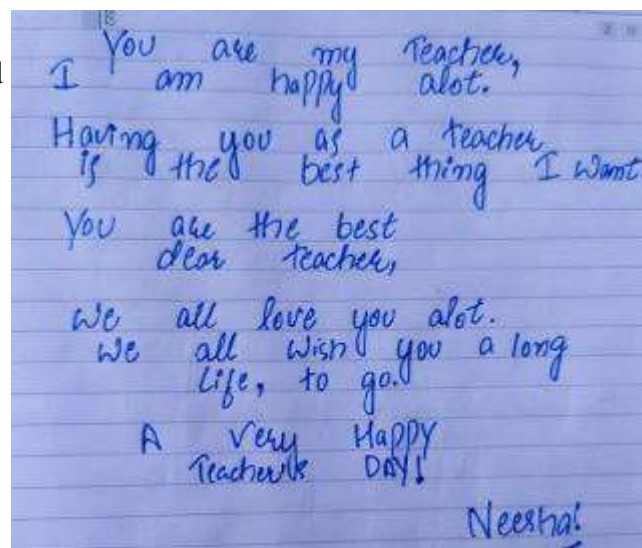 You are my Teacher,
I am happy alot.
Having you as a teacher
is the best thing I want.
You are the best
dear teacher,
We all love you alot.
We all wish you a long
life, to go.
A Very Happy
Teacher's DAY!
Neesha!